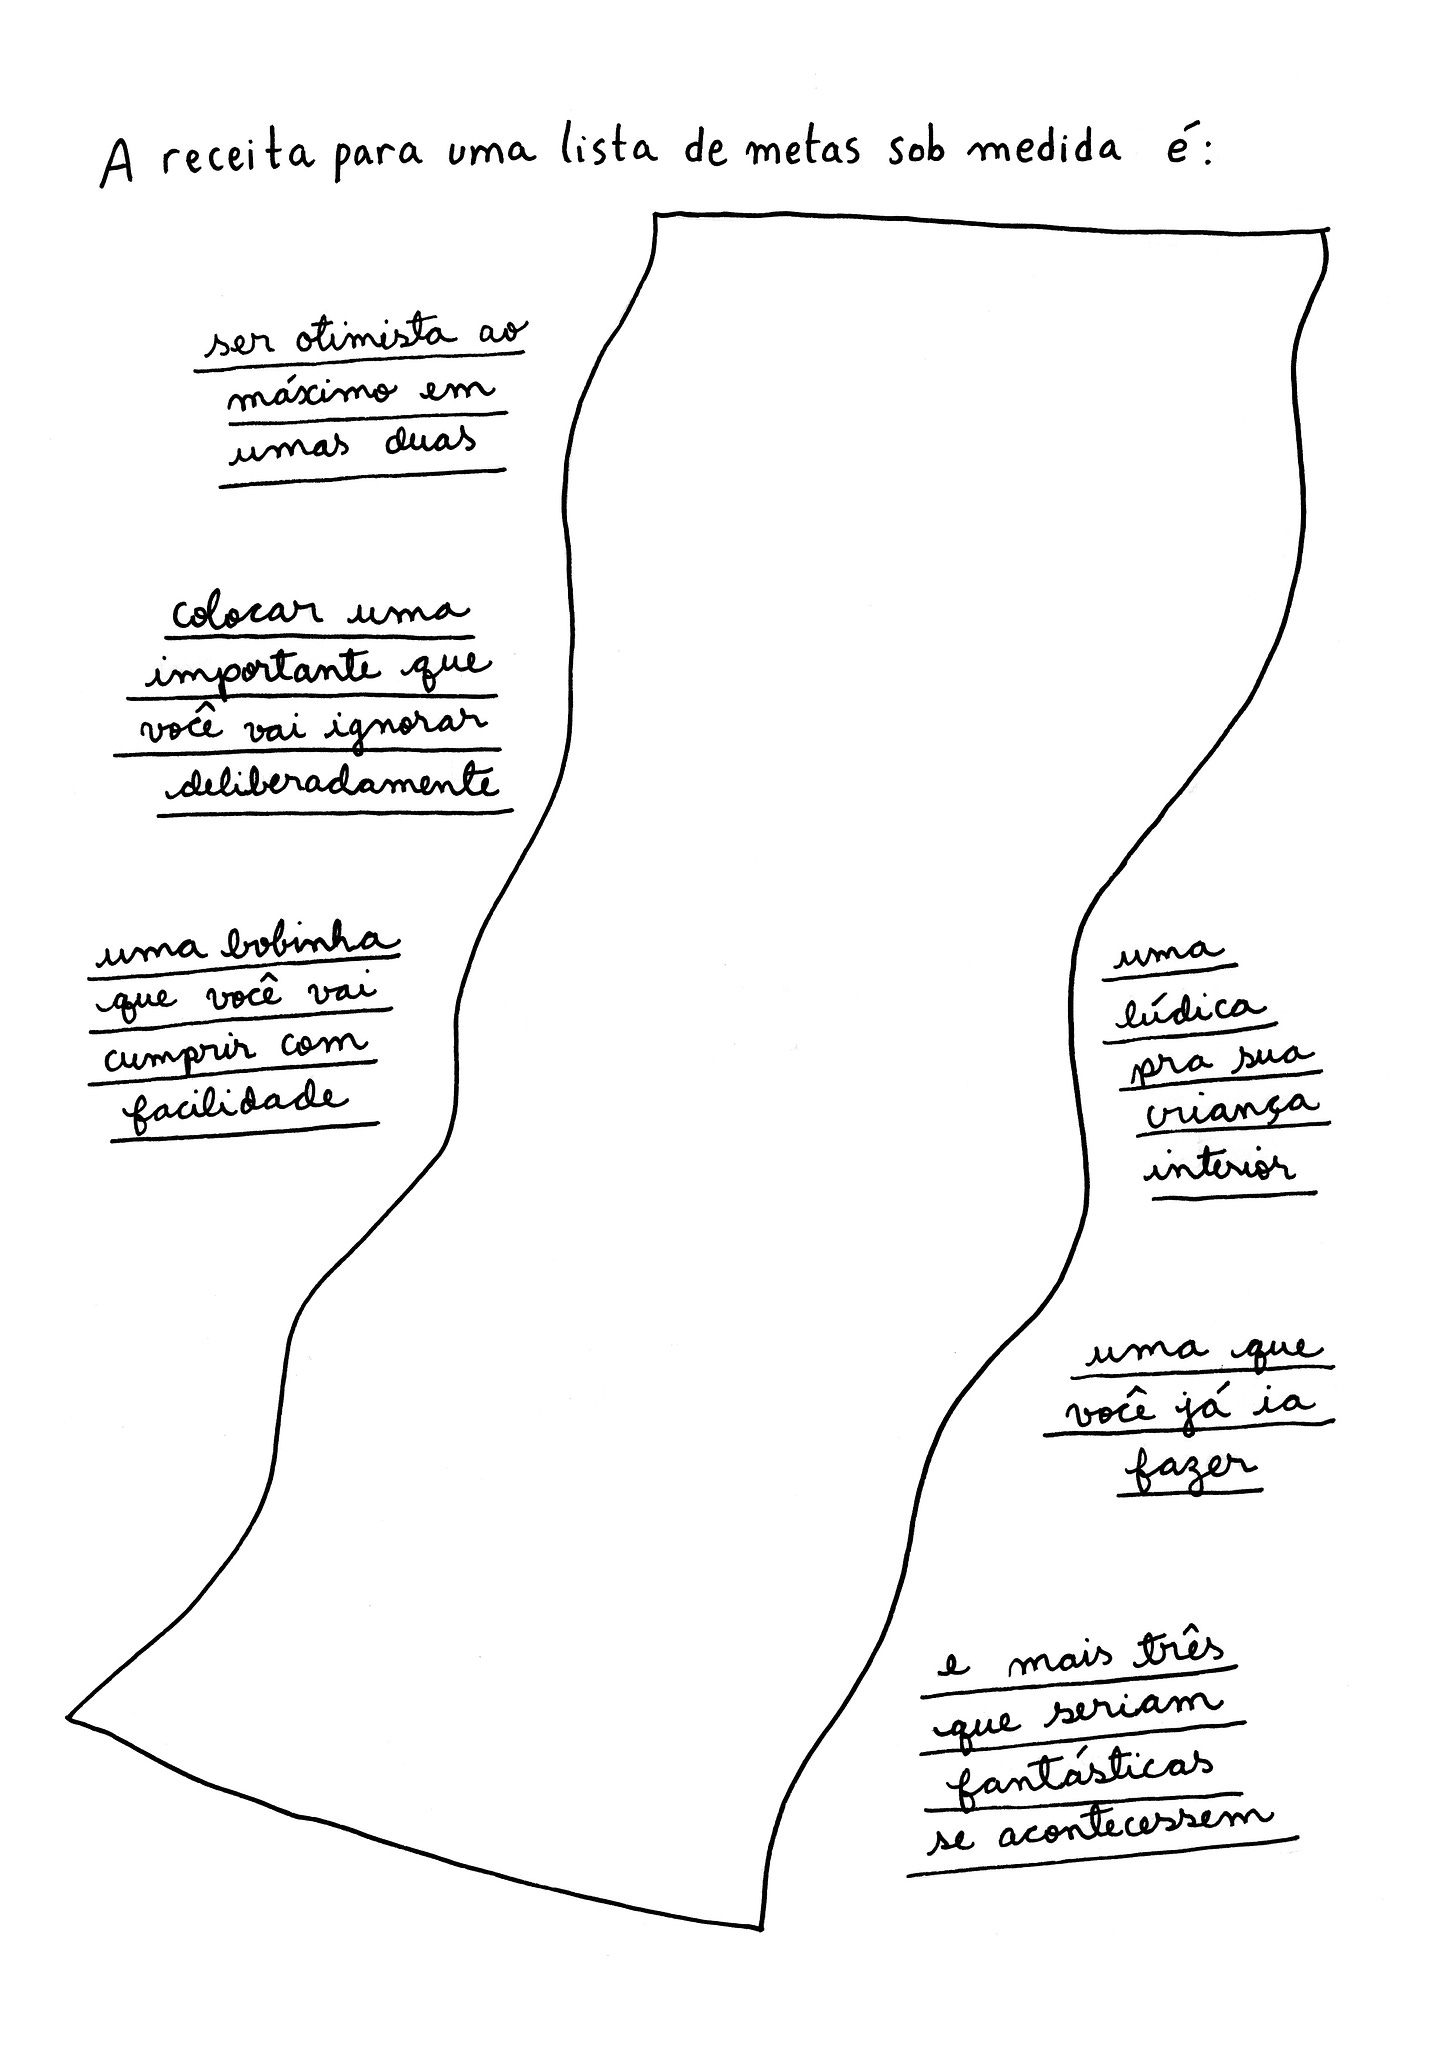 A receita para uma lista de metas sob medida é:
ser otimista ao
máximo em
umas duas
colocar uma
importante que
você vai ignorar
deliberadamente
uma bobinha
que você vai
cumprir com
facilidade
uma
lúdica
pra sua
criança
interior
uma que
você já ia
fazer
e mais três
que seriam
fantásticas
se acontecessem